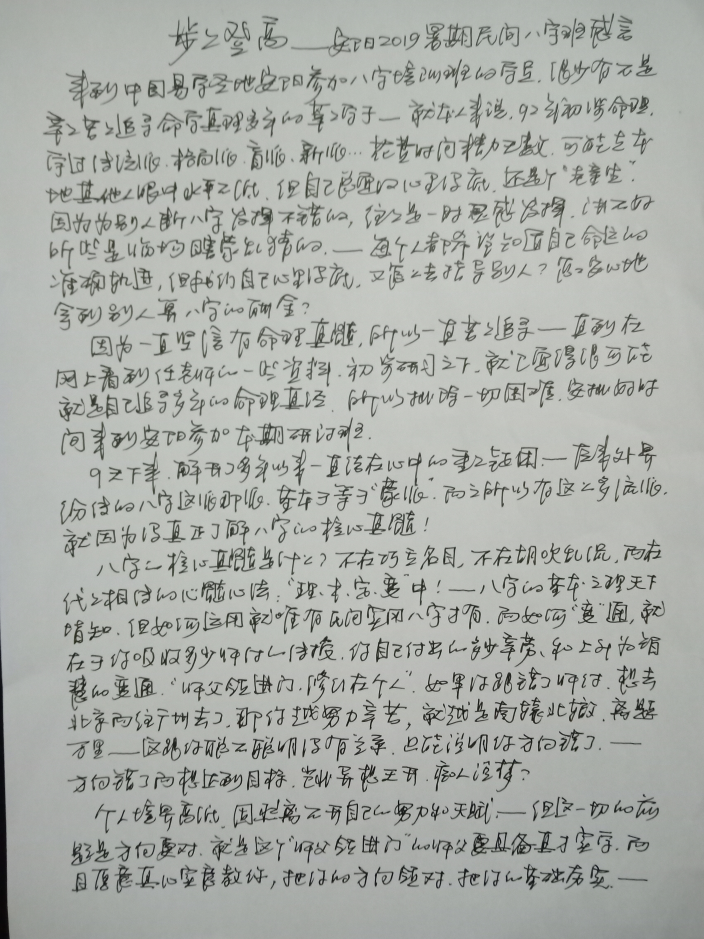 步步登高——安阳2019暑期民间八字班感言
来到中国易学圣地安阳参加八字培训班的学员，很少有不是
辛辛苦苦追寻命学真理多年的莘莘学子——就本人来说，92年初学命理，
学过传统派、格局派、盲派、新派…花费时间精力无数，可能在本
地其他人眼中水平不低，但自己总要的心里没底，还是个“老童生”。
因为为别人断八字发挥不错的，往往是一时灵感发挥，决不好
的些是临场瞎蒙乱猜的。——每个人都希望知道自己命运的
准确轨迹，但我们自己心里没底，又怎么去指导别人？怎么安心地
拿到别人算八字的酬金？
因为一直坚信有命理真髓，所以一直苦苦追寻——直到在
网上看到任老师的一些资料，初步研习之下，就已觉得很可能
就是自己追寻多年的命理真经，所以排除一切困难，安排好时
间来到安阳参加本期研讨班。
9天下来，解开了多年以来一直结在心中的重重疑团——在来外界
纷传的八字这派那派，基本于等于“蒙派”，而之所以有这么多流派，
就因为没真正了解八字的核心真髓！
八字的核心真髓是什么？不在巧立名目，不在胡吹乱侃，而在
代代相传的心髓心法：“理、本、定、变”中！——八字的基本之理天下
皆知，但如何运用就唯有民间实用八字才有，而如何“变”通，就
在于你吸收多少师父的传授，你自己付出的多少辛劳、和上升为智
慧的变通。“师父领进门，修行在个人”。如果你跟错了师付，想去
北京而往广州去了，那你越努力辛苦，就越是南辕北辙，离题
万里——这跟你聪不聪明没有关系，只能说明你方向错了。——
方向错了而想达到目标，岂非异想天开，痴人说梦？
个人境界高低，固然离不开自己的努力和天赋——但这一切的前
题是方向要对，就是这个“师父领进门”的师父要具备真才实学，而
且愿意真心实意教你，把你的方向领对，把你的基础夯实。——